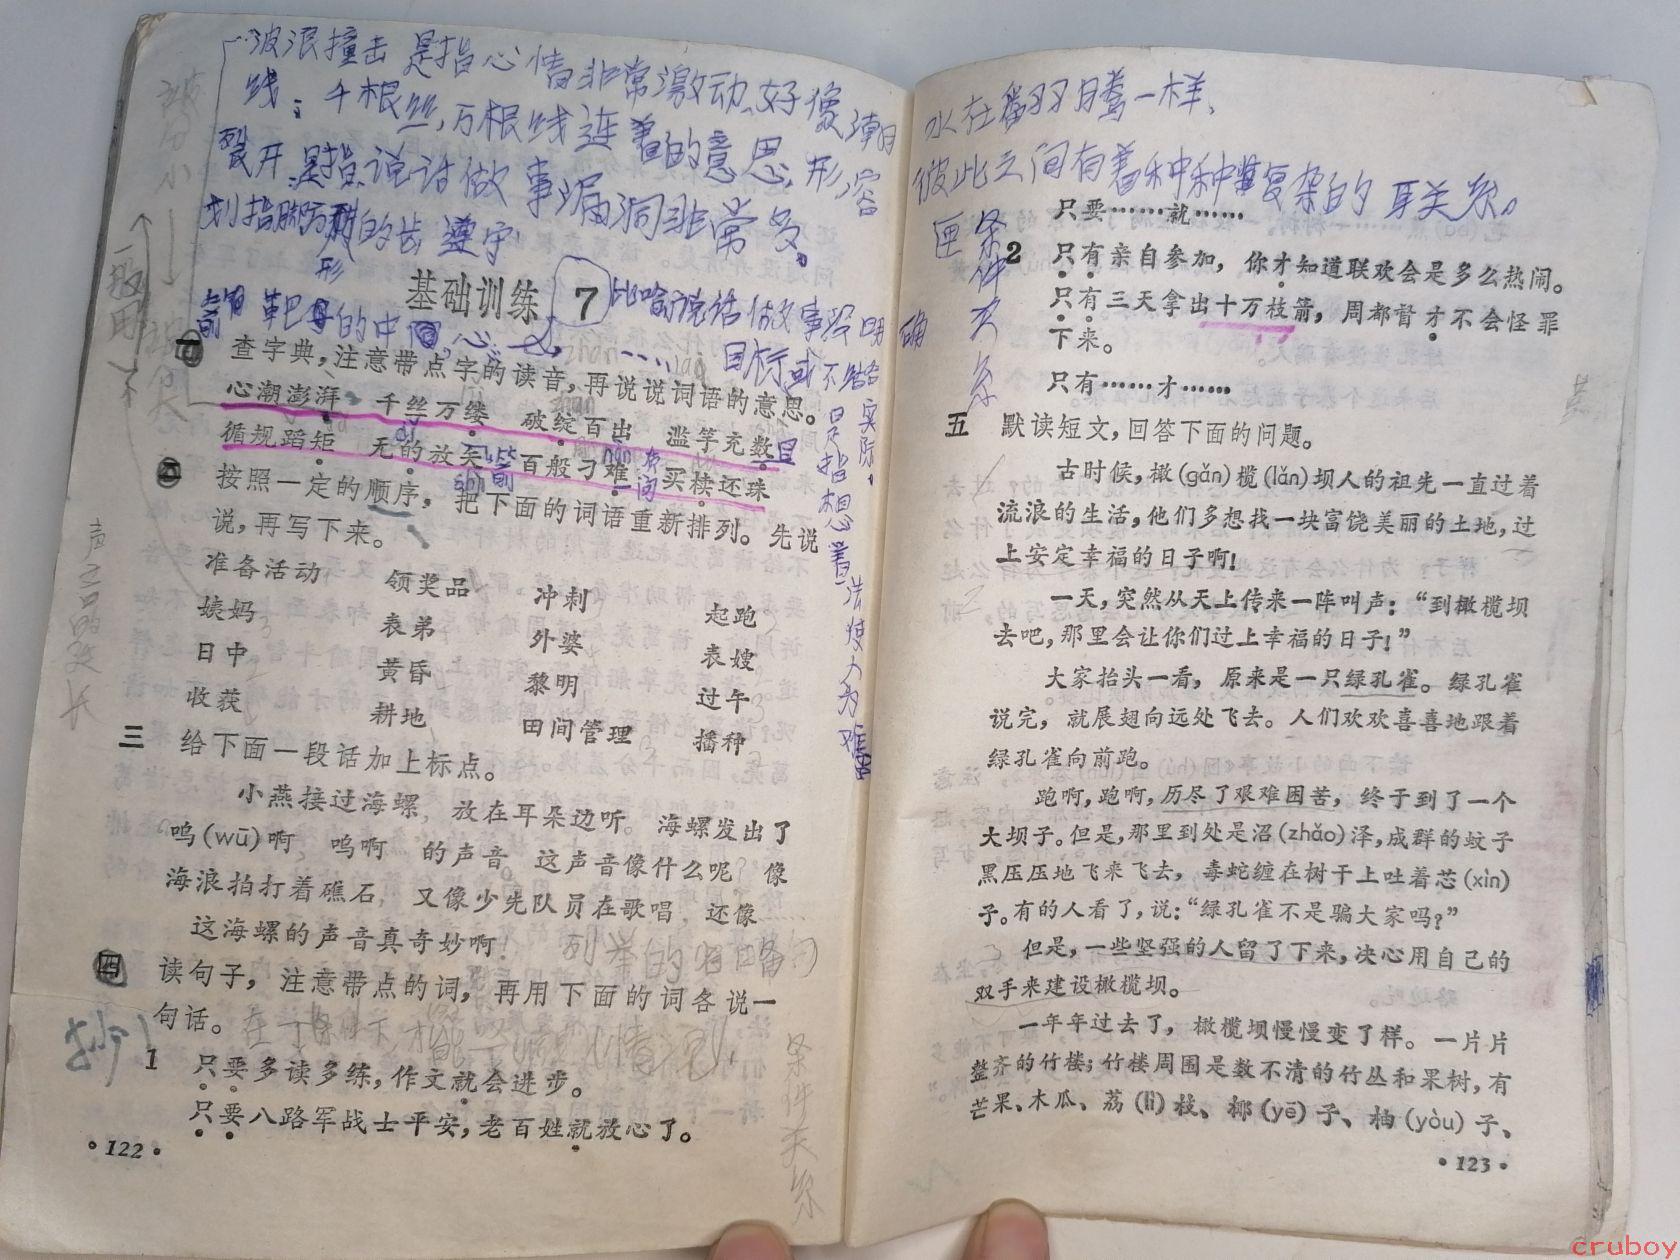 波浪撞击 是指心情非常激动、好像潮
线: 千根丝,万根线连着的意思,形容
裂开 是指说话做事漏洞非常多。
划 的步 遵守
形
基础训练 7
靶 的中 心
比喻说话做事 明
目标或不结合
实际。
是指想着法使人为难
一 查字典,注意带点字的读音,再说说词语的意思。
心潮澎湃 千丝万缕 破绽百出 滥竽充数
循规蹈矩 无的放矢 百般刁难 买椟还珠
二 按照一定的顺序,把下面的词语重新排列。先说
说,再写下来。
准备活动 领奖品 冲刺 起跑
姨妈 表弟 外婆 表嫂
日中 黄昏 黎明 过午
收获 耕地 田间管理 播种
三 给下面一段话加上标点。
小燕接过海螺, 放在耳朵边听。 海螺发出了
呜(wū)啊 呜啊 的声音 这声音像什么呢 像
海浪拍打着礁石, 又像少先队员在歌唱 还像
这海螺的声音真奇妙啊!
列举的省略
四 读句子,注意带点的词,再用下面的词各说一
句话。
1 只要多读多练,作文就会进步。
只要八路军战士平安,老百姓就放心了。
条件关系
·122·
水在翻腾一样、
彼此之间有着种种复杂的 关系。
条件关系
只要……就……
2 只有亲自参加,你才知道联欢会是多么热闹。
只有三天拿出十万枝箭,周都督才不会怪罪
下来。
只有……才……
五 默读短文,回答下面的问题。
古时候,橄(gǎn)榄(lǎn)坝人的祖先一直过着
流浪的生活,他们多想找一块富饶美丽的土地,过
上安定幸福的日子啊!
一天,突然从天上传来一阵叫声:“到橄榄坝
去吧,那里会让你们过上幸福的日子!”
大家抬头一看,原来是一只绿孔雀。绿孔雀
说完,就展翅向远处飞去。人们欢欢喜喜地跟着
绿孔雀向前跑。
跑啊,跑啊,历尽了艰难困苦,终于到了一个
大坝子。但是,那里到处是沼(zhǎo)泽,成群的蚊子
黑压压地飞来飞去,毒蛇缠在树干上吐着芯(xìn)
子。有的人看了,说:“绿孔雀不是骗大家吗?”
但是,一些坚强的人留了下来,决心用自己的
双手来建设橄榄坝。
一年年过去了,橄榄坝慢慢变了样。一片片
整齐的竹楼;竹楼周围是数不清的竹丛和果树,有
芒果、木瓜、荔(lì)枝、椰(yē)子、柚(yòu)子、
·123·
cruboy